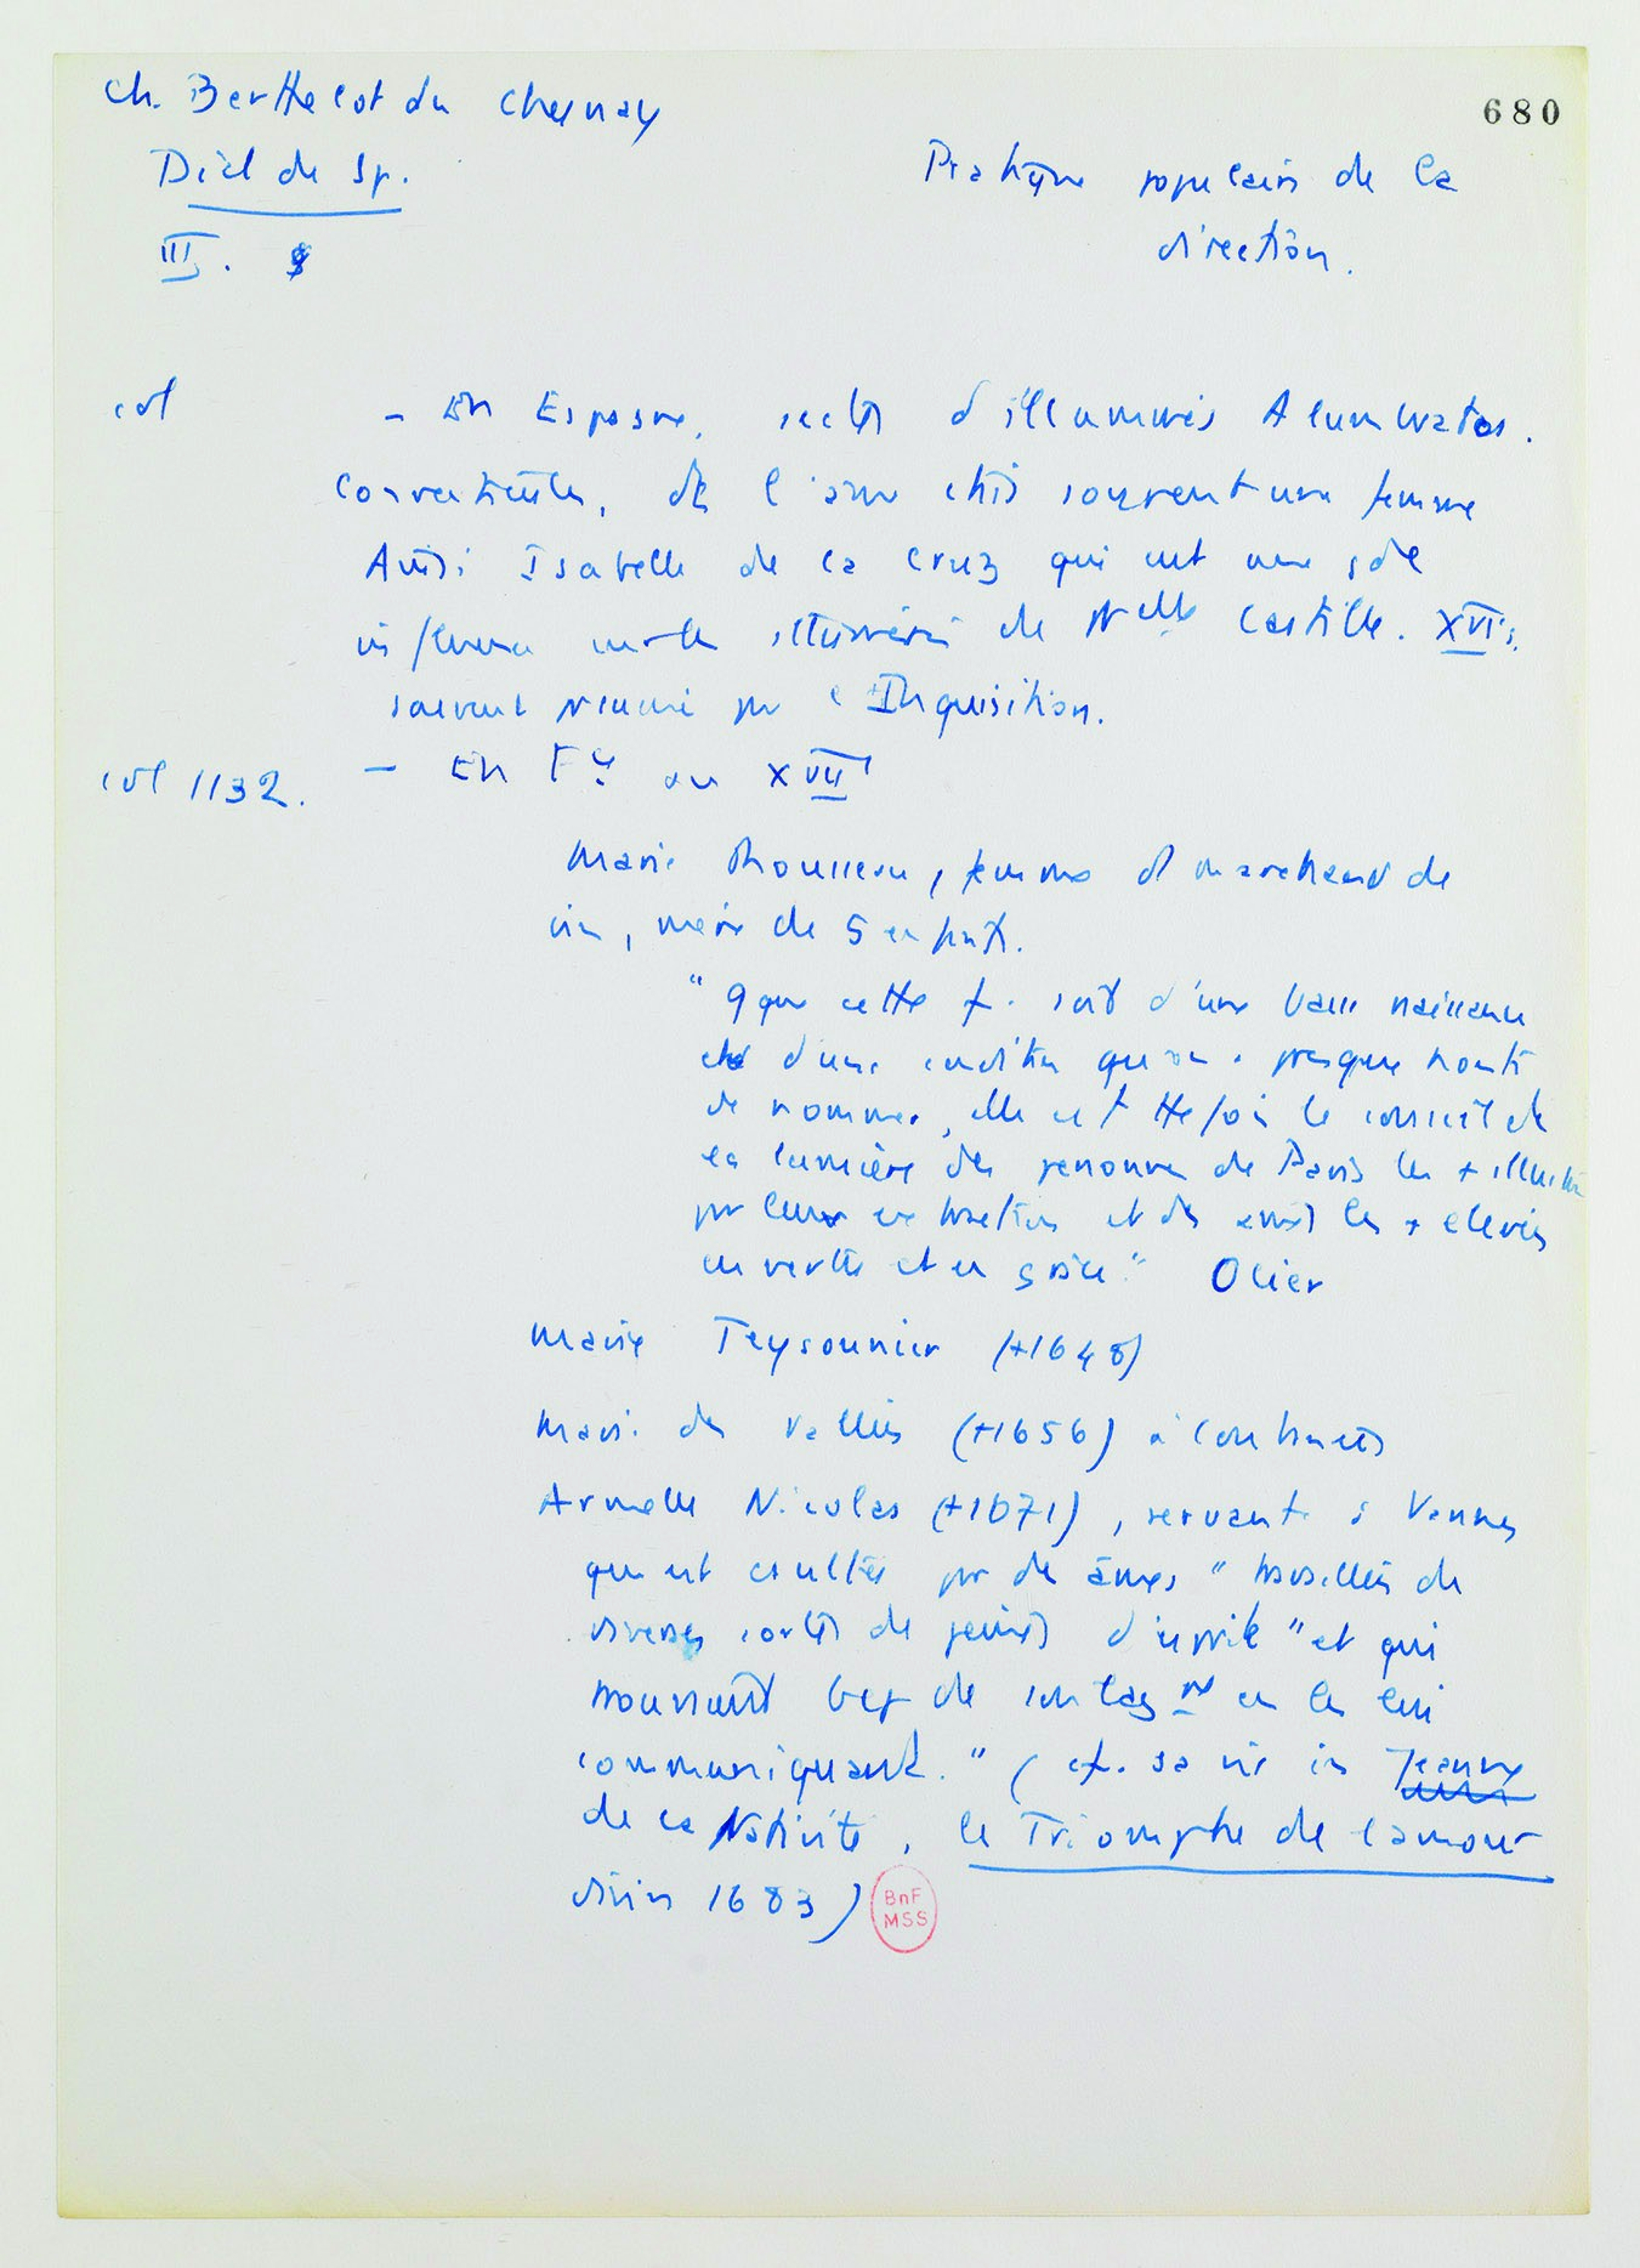 Ch. Berthelot du Chesnay
680
Dict de Sp.
Pratique populaire de la
direction.
III.
col
- En Espagne, sectes d'illuminés Alumbrados.
Conventicules, dt l'âme était souvent une femme
Ainsi Isabelle de la Cruz qui eut une gde
influence sur les illuminés de Nlle Castille. XVIe s.
souvent par l'Inquisition.
col 1132.
- En Fce au XVIIe
Marie Rousseau, femme d marchand de
vin, mère de 5 enfants.
" Qque cette f. soit d'une basse naissance
et d'une condition qu'on a presque honte
de nommer, elle est ttefois le conseil et
la lumière des personnes de Paris les + illustres
par leur extraction et des âmes les + élevées
en vertu et en grâce." Olier
Marie Teysonnier (+1648)
Marie des Vallées (+1656) à Coutances
Armelle Nicolas (+1671), servante à Vannes
qui est csultée par des âmes " travaillées de
diverses sortes de peines d'esprit " et qui
trouvaient bcp de soulagt en les lui
communiquant. " (cf. sa vie in Jeanne
de la Nativité, le Triomphe de l'amour
divin 1683)
BnF
MSS